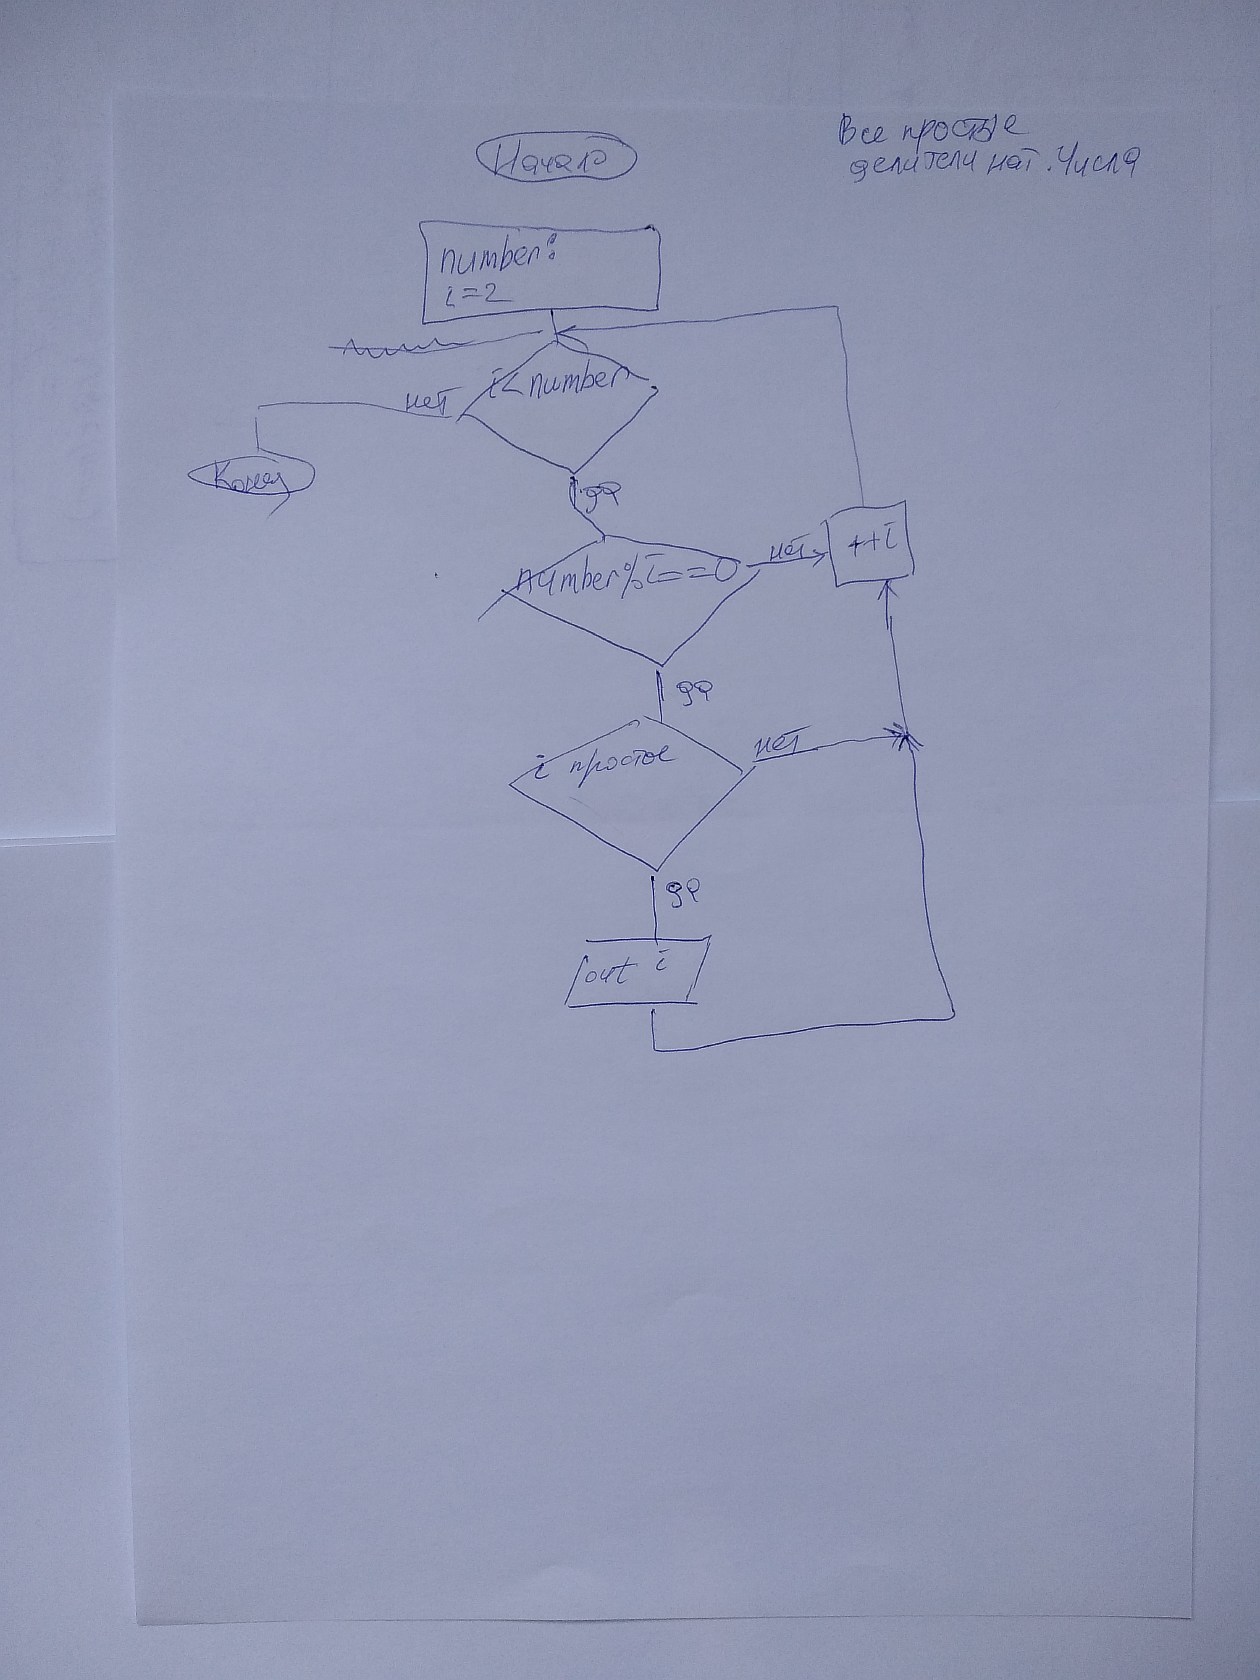 Все простые
делители нат. числа
Начало
number:
i=2
i<number
нет
Конец
да
number%i==0
нет
++i
да
i простое
нет
да
out i